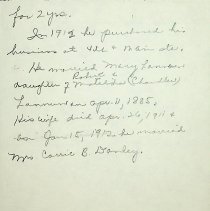 for 2 yrs.
In 1912 he purchased his
business at 4th & Main Sts.
He married Mary Lannen
Robert &
daughter of Matilda (Chandler)
Lannen on Apr. 11, 1885.
His wife died Apr. 26, 1911 &
on Jan 15, 1912 he married
Mrs Carrie B Danley.